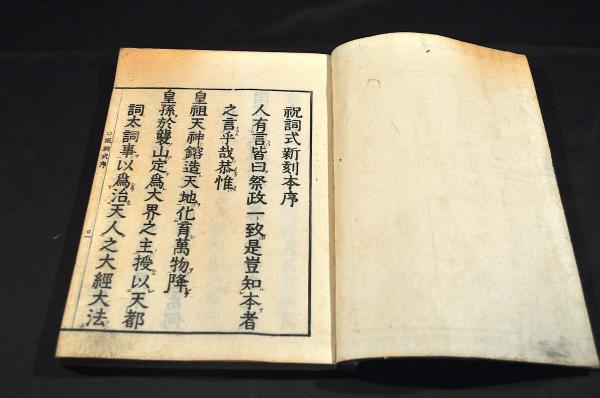 祝詞式新刻本序
人有言皆曰祭政一致是豈知本者
之言乎哉恭惟
皇祖天神鎔造天地化育萬物降
皇孫於襲山定爲大界之主授以天都
詞太詞事以爲治天人之大經大法
祝詞式序